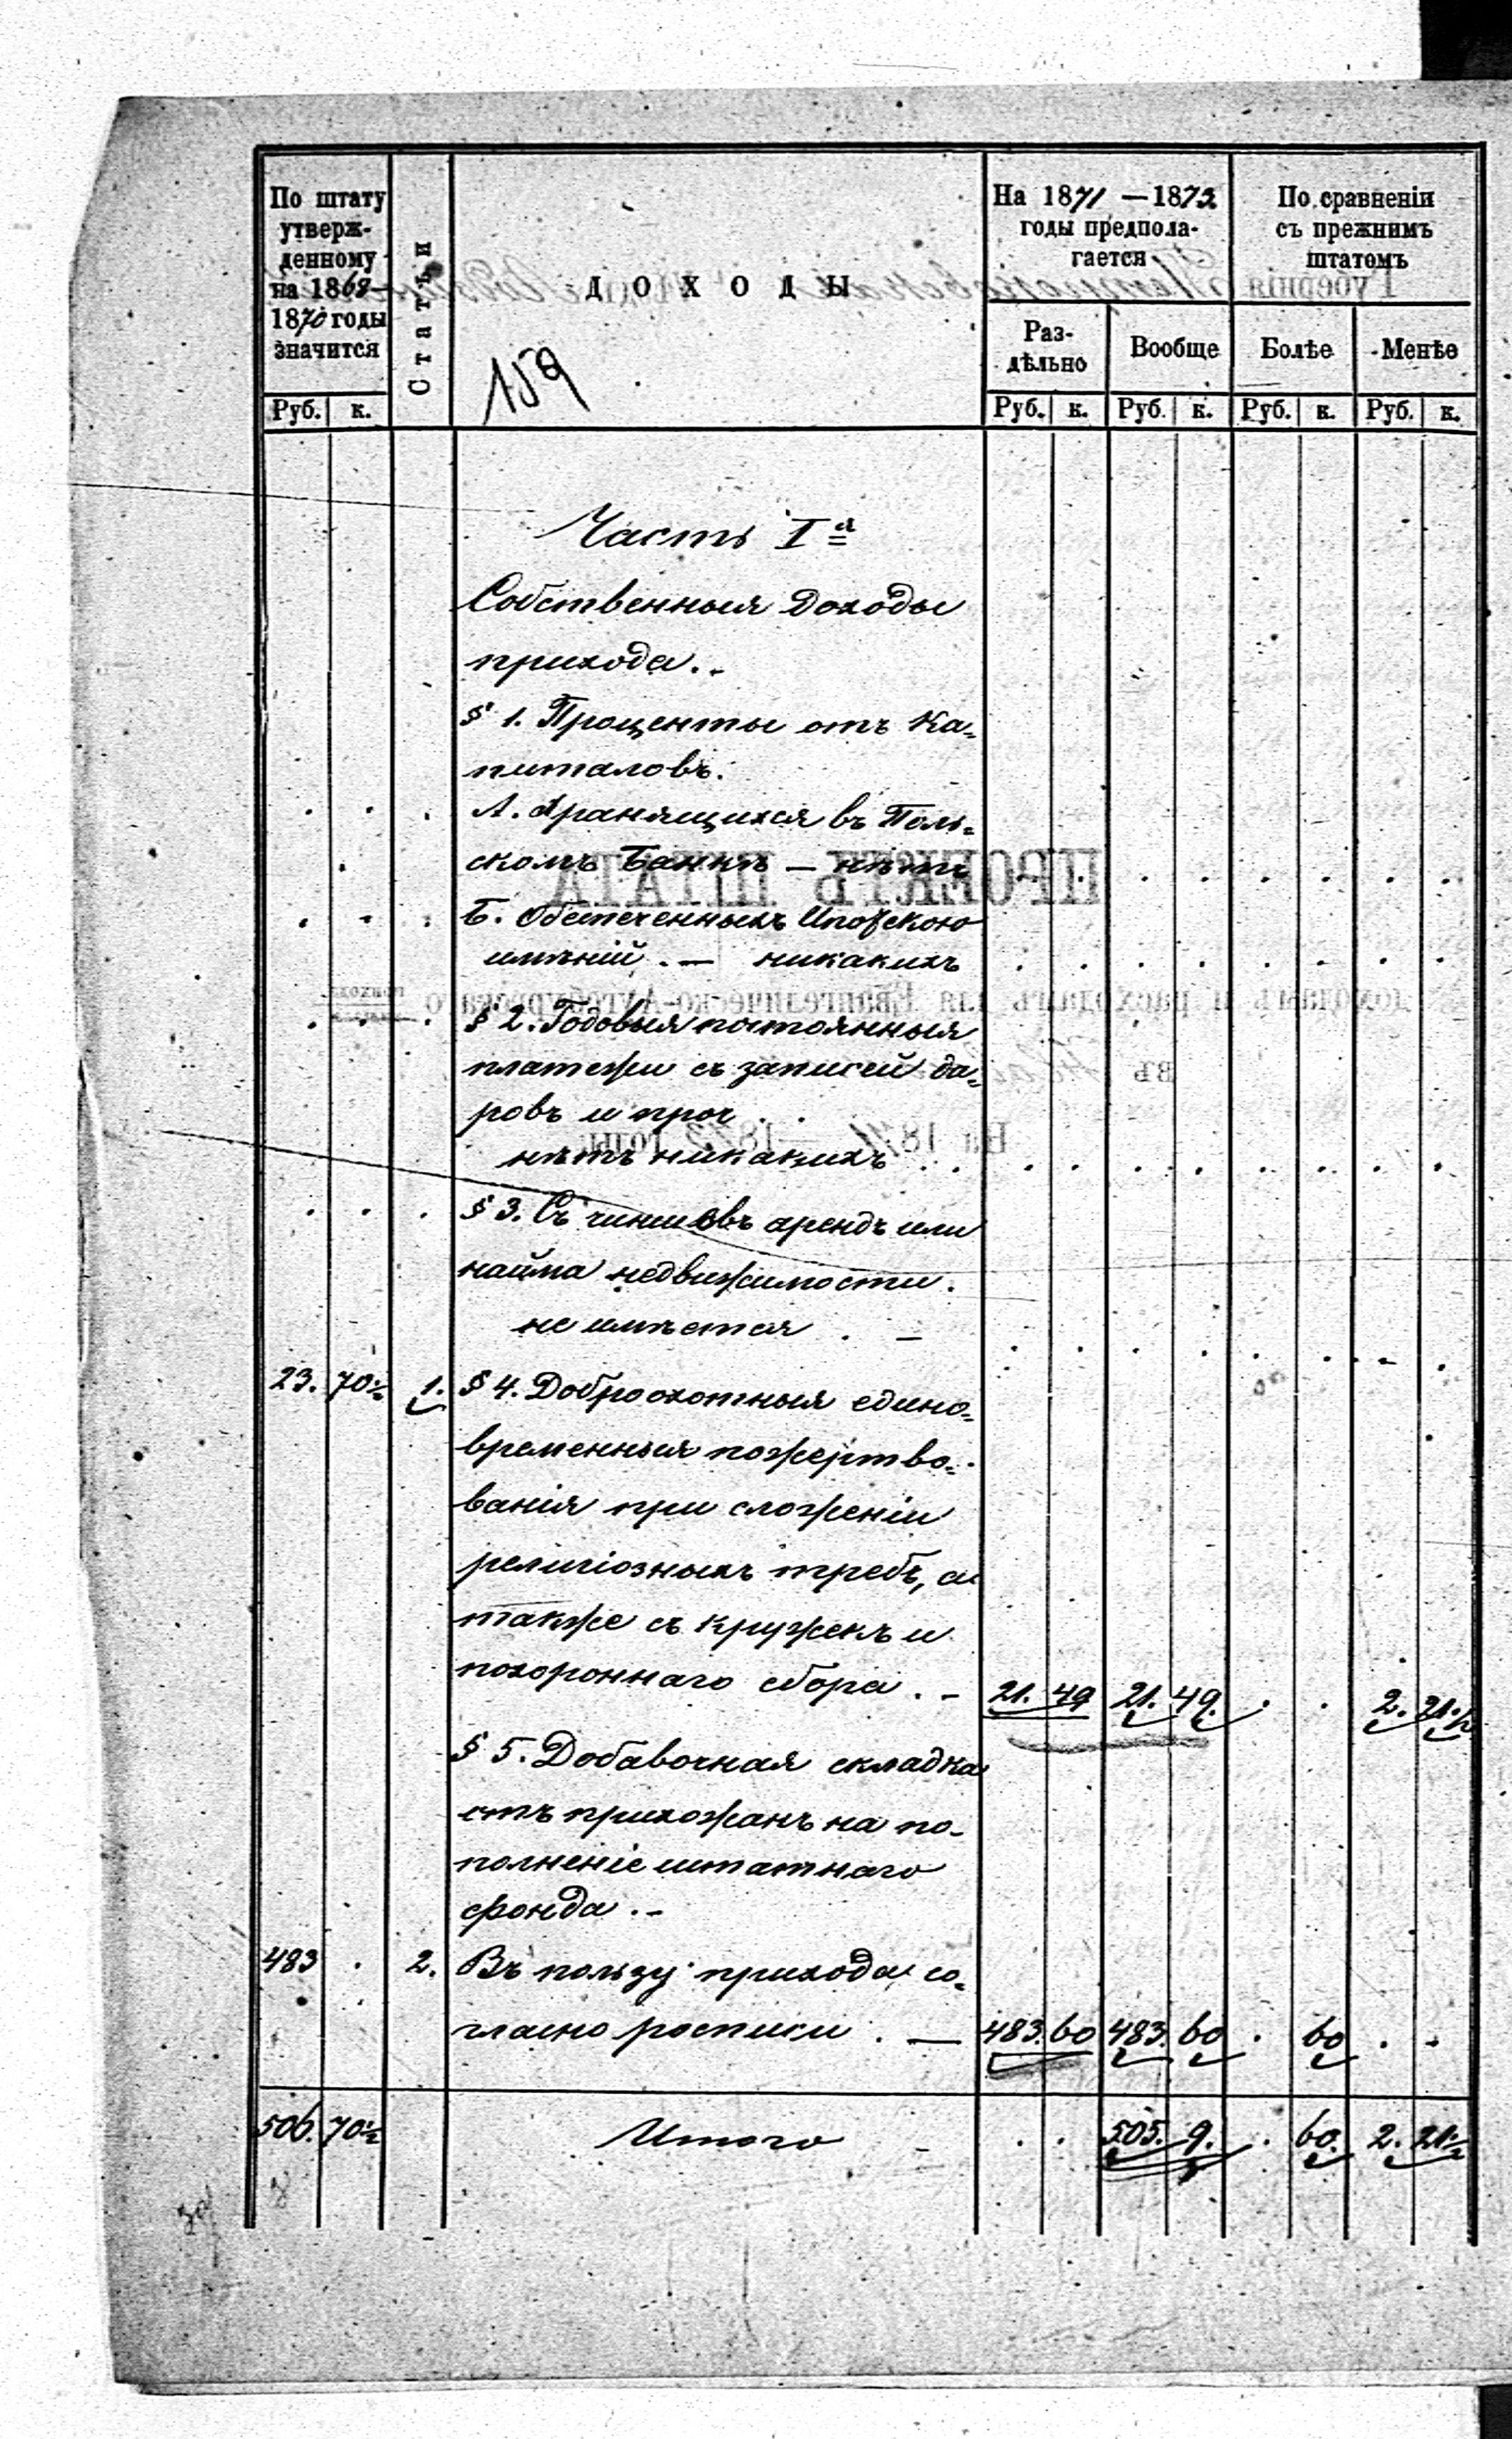 По штату утверж-денному на 1868-1870 годы значится
Статьи
ДОХОДЫ
159
На 1871 — 1872 годы предпола-гается
По сравненіи съ прежнимъ штатомъ
Раз-дѣльно
Вообще
Болѣе
Менѣе
Руб. к. Руб. к. Руб. к. Руб. к. Руб. к.
Часть Iя
Собственныя доходы
прихода.
§ 1. Проценты отъ Ка=
питаловъ.
А. Хранящихся въ Поль=
скомъ Банкѣ — нѣтъ
Б. Обезпеченныхъ Ипотекою
имѣній. — никакихъ
§ 2. Годовыя постоянныя
платежи съ записей да=
ровъ и проч.
нѣтъ никакихъ . .
§ 3. Съ чиншовъ арендъ или
найма недвижимости.
не имѣется . —
23. 70½ 1. § 4. Доброохотныя едино=
временныя пожертво=
ванія при сложеніи
религіозныхъ требъ, а
также съ кружекъ и
похороннаго сбора . — 21. 49 21. 49. . . 2. 21½
§ 5. Добавочная складка
отъ прихожанъ на по-
полненіе штатнаго
фонда . —
483 . 2. Въ пользу прихода со=
гласно росписи . — 483. 60 483. 60 . 60 . .
506. 70½ Итого — . . 505. 9. . 60. 2. 21½